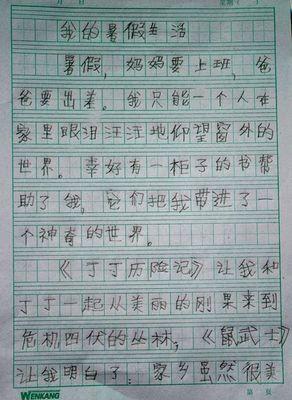 月 日 星期( )
我的暑假生活
暑假，妈妈要上班，爸
爸要出差。我只能一个人在
家里眼泪汪汪地仰望窗外的
世界。幸好有一柜子的书帮
助了我，它们把我带进了一
个神奇的世界。
《丁丁历险记》让我和
丁丁一起从美丽的刚果来到
危机四伏的丛林；《鼠武士》
让我明白了：家乡虽然很美
WENKANG 第 页